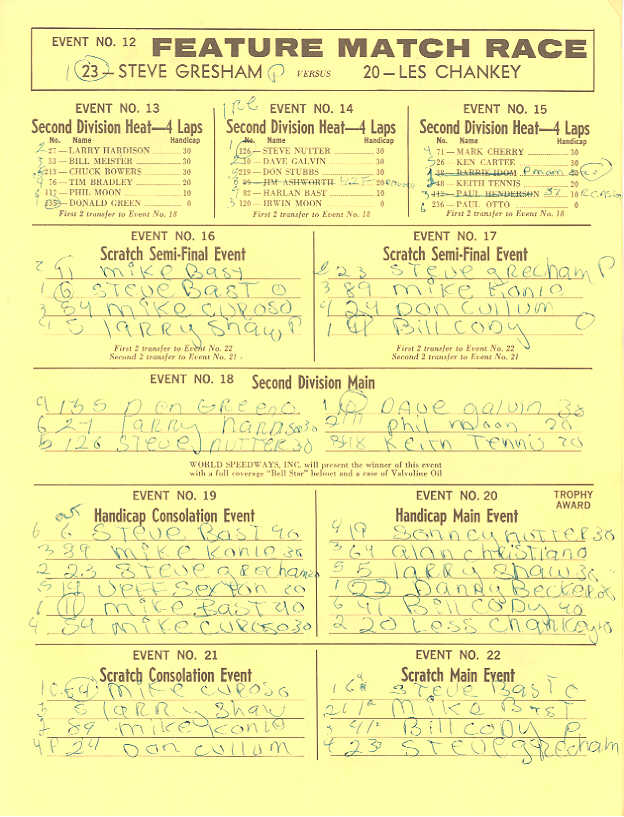 EVENT NO. 12 FEATURE MATCH RACE
1 23—STEVE GRESHAM P VERSUS 20—LES CHANKEY
EVENT NO. 13
Second Division Heat—4 Laps
No. Name Handicap
2 27—LARRY HARDISON 30
3 33—BILL MEISTER 30
5 213—CHUCK BOWERS 30
4 76—TIM BRADLEY 20
112—PHIL MOON 10
1 135—DONALD GREEN 0
First 2 transfer to Event No. 18
EVENT NO. 14
Second Division Heat—4 Laps
No. Name Handicap
1 126—STEVE NUTTER 30
2 10—DAVE GALVIN 30
4 219—DON STUBBS 30
89—JIM ASHWORTH
82—HARLAN BAST 10
3 120—IRWIN MOON 0
First 2 transfer to Event No. 18
EVENT NO. 15
Second Division Heat—4 Laps
No. Name Handicap
4 71—MARK CHERRY 30
5 26 KEN CARTEE 30
38—BARRIE IDOM 20
48—KEITH TENNIS 20
3 112—PAUL HENDERSON 10
6 236—PAUL OTTO 0
First 2 transfer to Event No. 18
EVENT NO. 16
Scratch Semi-Final Event
2 11 MIKE BAST
1 6 STEVE BAST O
3 54 MIKE CUROSO
4 5 LARRY SHAW P
First 2 transfer to Event No. 22
Second 2 transfer to Event No. 21
EVENT NO. 17
Scratch Semi-Final Event
2 23 STEVE GRECHAM P
3 89 MIKE KONIO
4 24 DON CULLUM
1 41 BILL CODY O
First 2 transfer to Event No. 22
Second 2 transfer to Event No. 21
EVENT NO. 18 Second Division Main
4 135 DON GREEN O
6 27 LARRY HARDISON 30
5 126 STEVE NUTTER 30
1 10 DAVE GALVIN 30
PHIL MOON 20
KEITH TENNIS 20
WORLD SPEEDWAYS, INC. will present the winner of this event
with a full coverage "Bell Star" helmet and a case of Valvoline Oil
EVENT NO. 19
Handicap Consolation Event
out
6 6 STEVE BAST 40
3 89 MIKE KONIO 30
2 23 STEVE GRECHAM
5 JEFF SEXTON 20
1 11 MIKE BAST 40
4 54 MIKE CUROSO 30
EVENT NO. 20 TROPHY AWARD
Handicap Main Event
4 19 SONNEY NUTTER 30
3 64 ALAN CHRISTIANO
5 5 LARRY SHAW 30
1 22 DANNY BECKER 20
6 41 BILL CODY 40
2 20 LESS CHANKEY 40
EVENT NO. 21
Scratch Consolation Event
1 O 54 MIKE CUROSO
3 5 LARRY SHAW
2 89 MIKE KONIO
4 P 24 DON CULLUM
EVENT NO. 22
Scratch Main Event
1 6 STEVE BAST O
2 11 MIKE BAST
3 41 BILL CODY P
4 23 STEVE GRECHAM